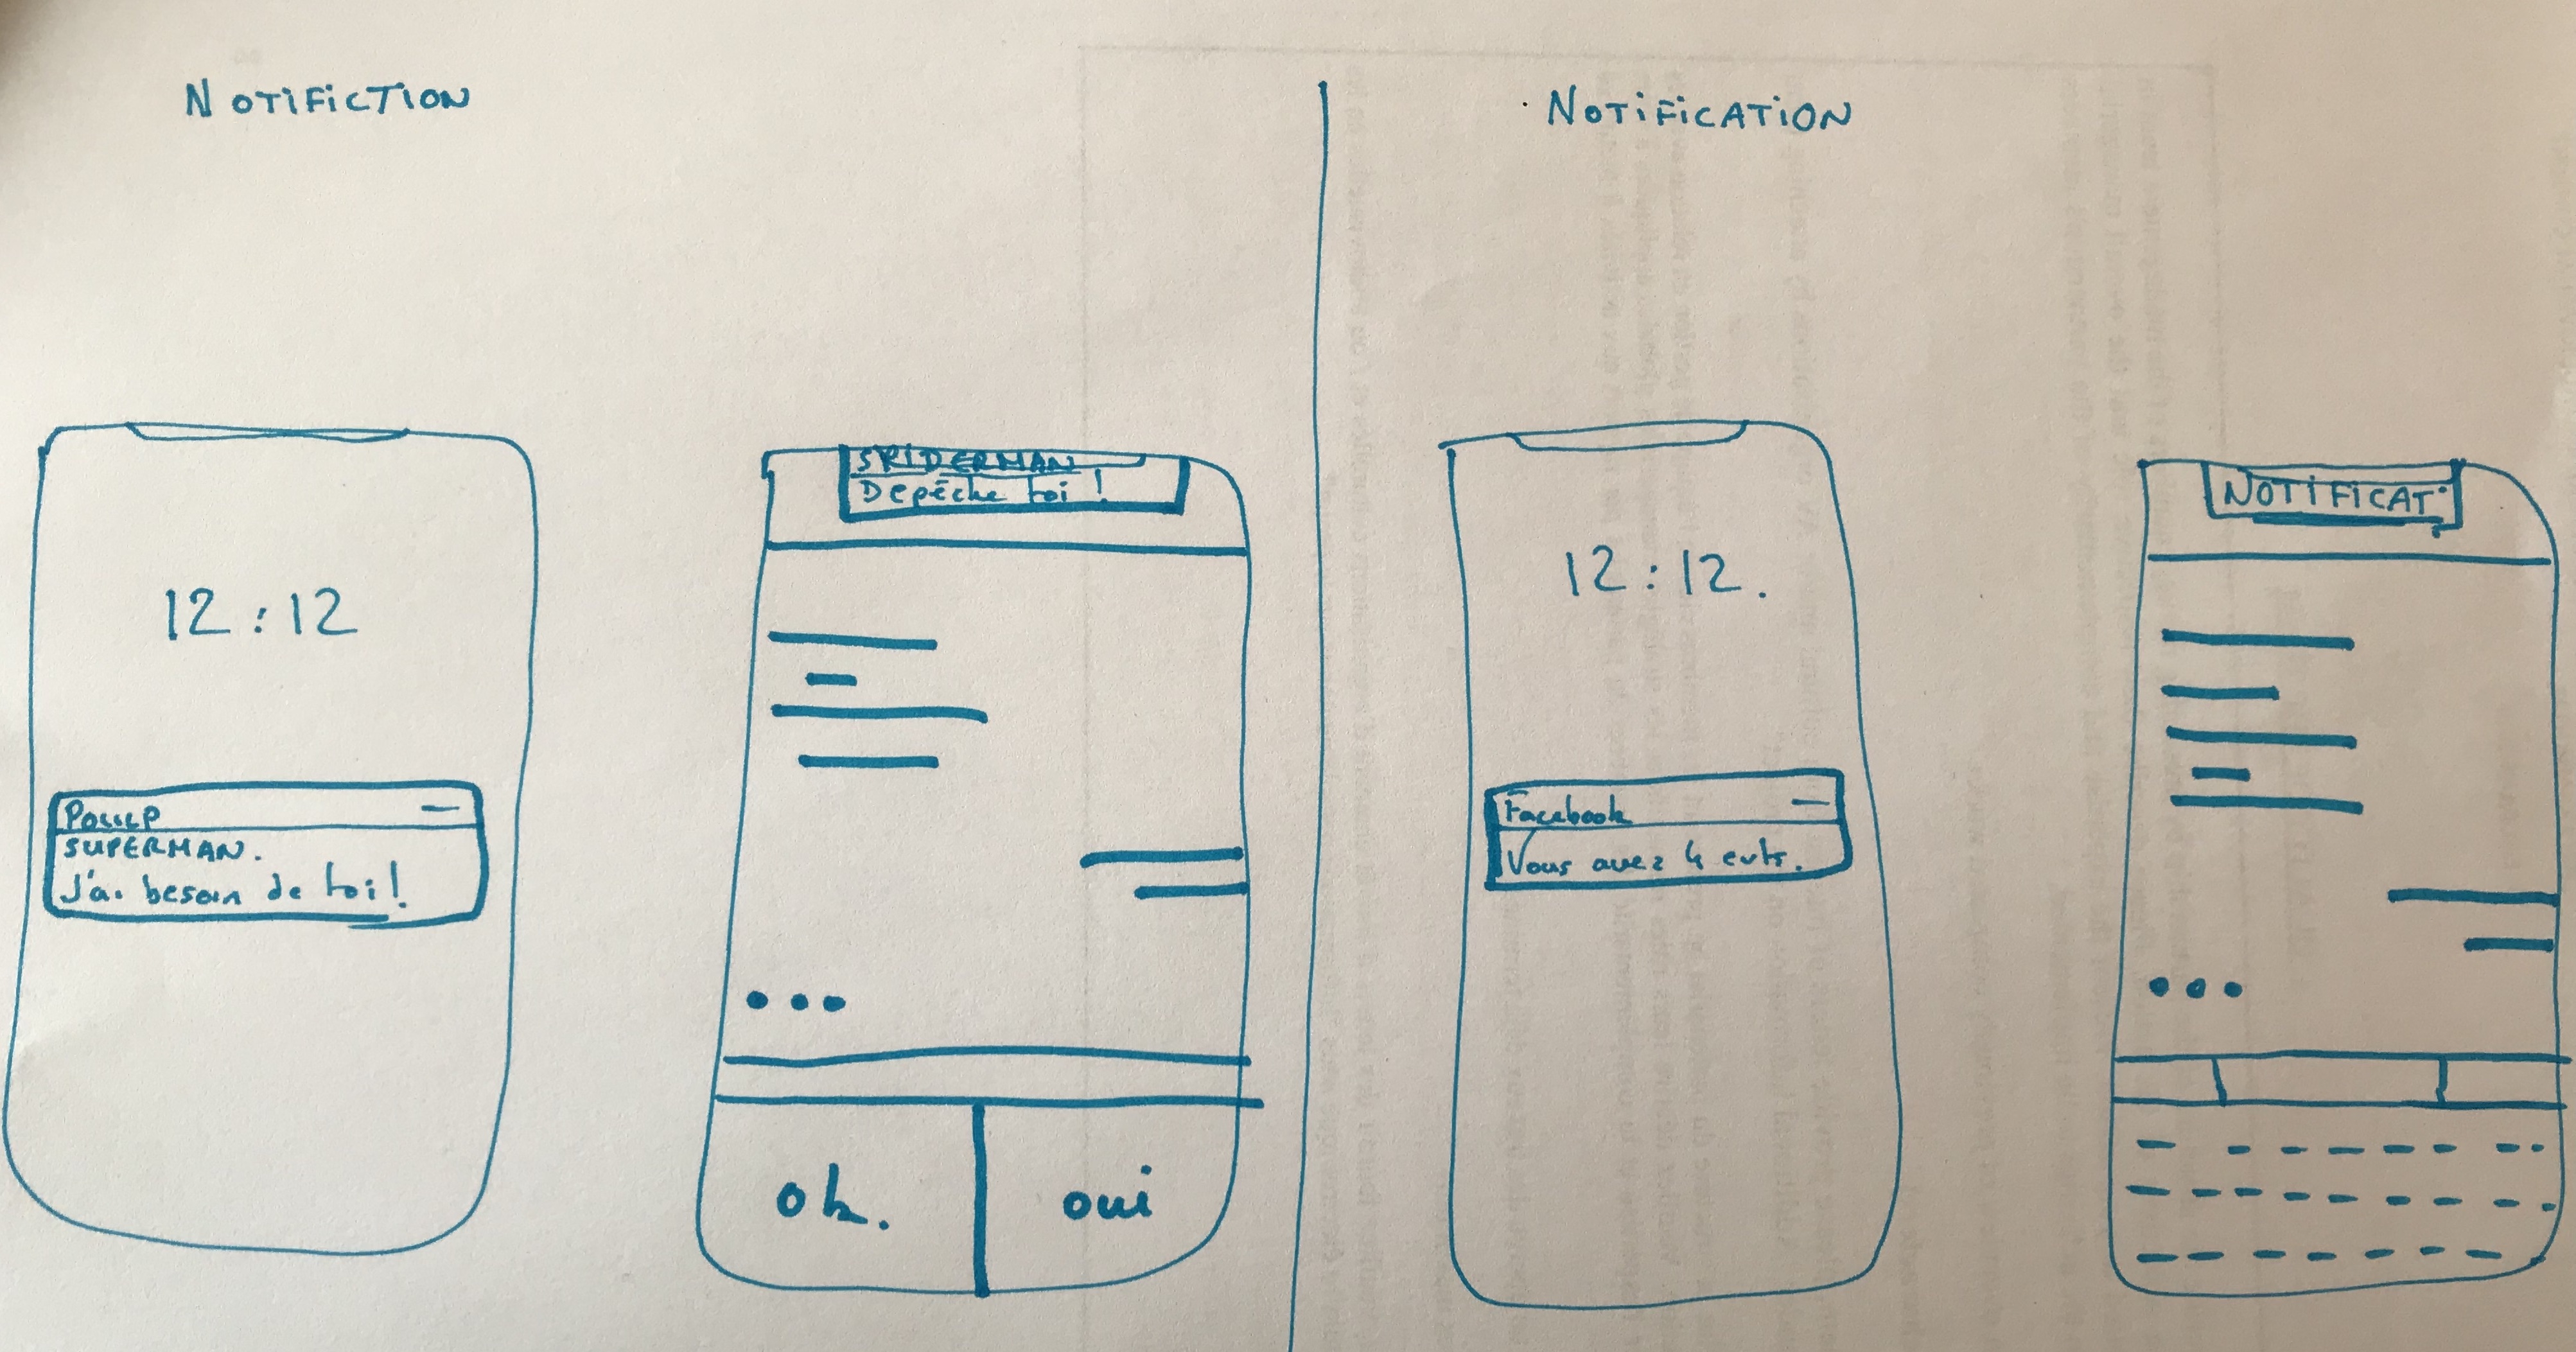 NOTIFICTION
12:12
POULP
SUPERMAN.
J'ai besoin de toi!
SPIDERMAN
Depêche toi!
ok.
oui
NOTIFICATION
12:12.
Facebook
Vous avez 4
NOTIFICAT°